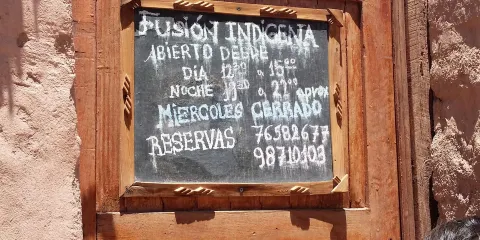 FUSIÓN INDIGENA
ABIERTO DESDE
DIA 12:30 a 15:00
NOCHE a 22:00 aprox
MIERCOLES CERRADO
RESERVAS 76582677
98710103